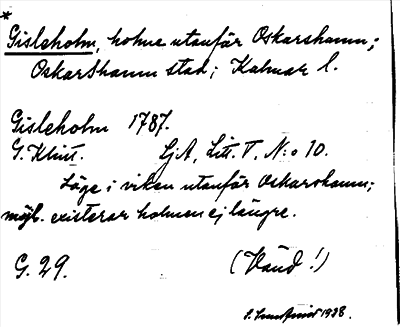 *
Gisleholm, holme utanför Oskarshamn;
Oskarshamn stad; Kalmar l.
Gisleholm 1787.
G. Klint. SjA, Litt. T, N:o 10.
Läge i viken utanför Oskarshamn;
möjl. existerar holmen ej längre.
G. 29.
(Vänd!)
1928.